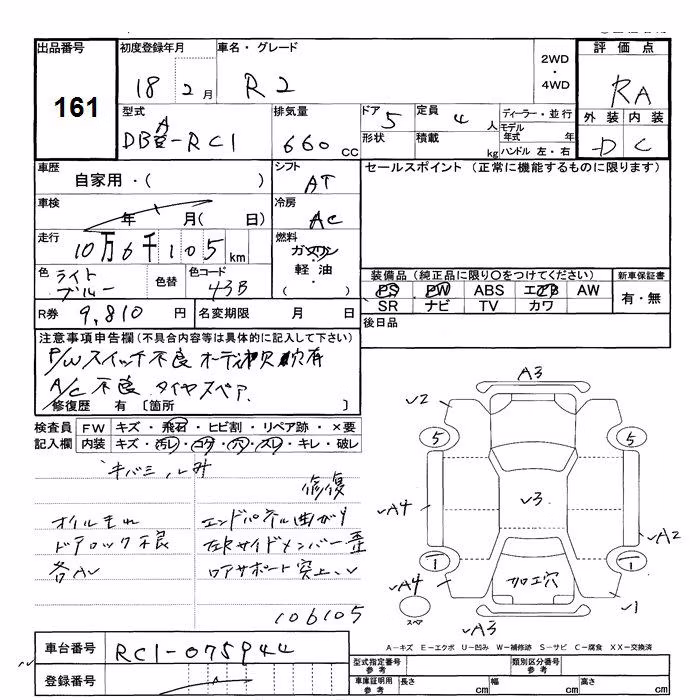 出品番号 初度登録年月 車名・グレード 評価点
161
18 2月 R2 2WD ・ 4WD RA
型式 排気量 ドア 5 定員 4人 ディーラー・並行 外装 内装
DBA-RC1 660 CC 形状 積載 kg モデル年式 年 D C
ハンドル 左・右
車歴 シフト セールスポイント (正常に機能するものに限ります)
自家用・( ) AT
車検 年 月( 日) 冷房 AC
走行 10万6千105 km 燃料 ガソリン
軽油・
( )
色 ライトブルー 色替 色コード 43B
装備品 (純正品に限り○をつけてください) 新車保証書
PS PW ABS エアB AW 有・無
SR ナビ TV カワ
R券 9,810 円 名変期限 月 日 後日品
注意事項申告欄(不具合内容等は具体的に記入して下さい)
P/Wスイッチ不良 オーディオ欠 欠有
A/C不良 タイヤスペア
修復歴 有 [箇所 ]
検査員 FW キズ・飛石・ヒビ割・リペア跡・×要
記入欄 内装 キズ・汚レ・コゲ・穴・スレ・キレ・破レ
修復
オイルもれ エンドパネル曲がり
ドアロック不良 左Rサイドメンバー歪
各AU ロアサポート突上
106105
A3
V2
5 5
A4 V3 A2
1 1
A4 加工穴 V1
スペア
A3
A-キズ E-エクボ U-凹み W-補修跡 S-サビ C-腐食 XX-交換済
車台番号 RC1-075944
登録番号
型式指定番号 参考 類別区分番号 参考
車庫証明用 参考 長さ cm 幅 cm 高さ cm